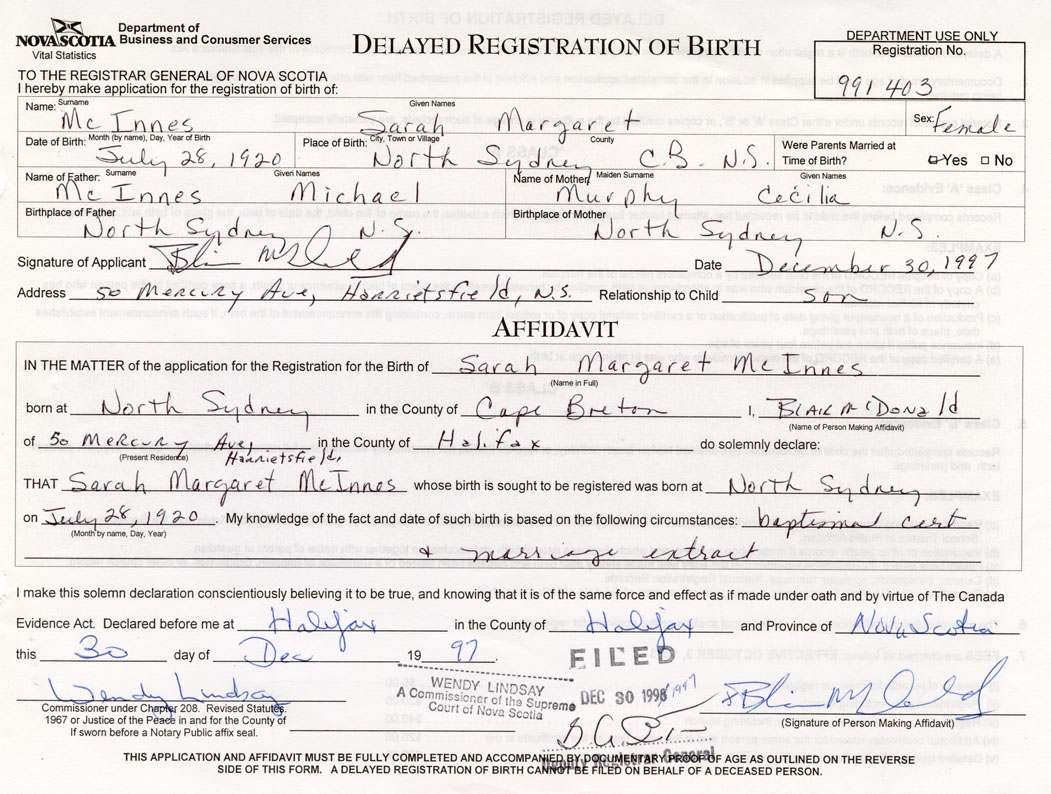 NOVA SCOTIA Department of
Business and Conusmer Services
Vital Statistics
DELAYED REGISTRATION OF BIRTH
DEPARTMENT USE ONLY
Registration No.
991 403
TO THE REGISTRAR GENERAL OF NOVA SCOTIA
I hereby make application for the registration of birth of:
Name: Surname Given Names
McInnes Sarah Margaret
Sex: Female
Date of Birth: Month (by name), Day, Year of Birth
July 28, 1920
Place of Birth: City, Town or Village County
North Sydney C.B. N.S.
Were Parents Married at
Time of Birth? Yes No
Name of Father: Surname Given Names
McInnes Michael
Name of Mother: Maiden Surname Given Names
Murphy Cecilia
Birthplace of Father
North Sydney N.S.
Birthplace of Mother
North Sydney N.S.
Signature of Applicant Blair McDonald Date December 30, 1997
Address 50 Mercury Ave, Harrietsfield, N.S. Relationship to Child son
AFFIDAVIT
IN THE MATTER of the application for the Registration for the Birth of Sarah Margaret McInnes
(Name in Full)
born at North Sydney in the County of Cape Breton I, Blair McDonald
(Name of Person Making Affidavit)
of 50 Mercury Ave, in the County of Halifax do solemnly declare:
(Present Residence) Harrietsfield,
THAT Sarah Margaret McInnes whose birth is sought to be registered was born at North Sydney
on July 28, 1920. My knowledge of the fact and date of such birth is based on the following circumstances: baptismal cert
(Month by name, Day, Year)
& marriage extract
I make this solemn declaration conscientiously believing it to be true, and knowing that it is of the same force and effect as if made under oath and by virtue of The Canada
Evidence Act. Declared before me at Halifax in the County of Halifax and Province of Nova Scotia
this 30 day of Dec 19 97.
FILED
DEC 30 1998 1997
Wendy Lindsay
WENDY LINDSAY
A Commissioner of the Supreme
Court of Nova Scotia
Blair McDonald
Commissioner under Chapter 208. Revised Statutes.
1967 or Justice of the Peace in and for the County of
If sworn before a Notary Public affix seal.
(Signature of Person Making Affidavit)
Deputy Registrar General
THIS APPLICATION AND AFFIDAVIT MUST BE FULLY COMPLETED AND ACCOMPANIED BY DOCUMENTARY PROOF OF AGE AS OUTLINED ON THE REVERSE
SIDE OF THIS FORM. A DELAYED REGISTRATION OF BIRTH CANNOT BE FILED ON BEHALF OF A DECEASED PERSON.